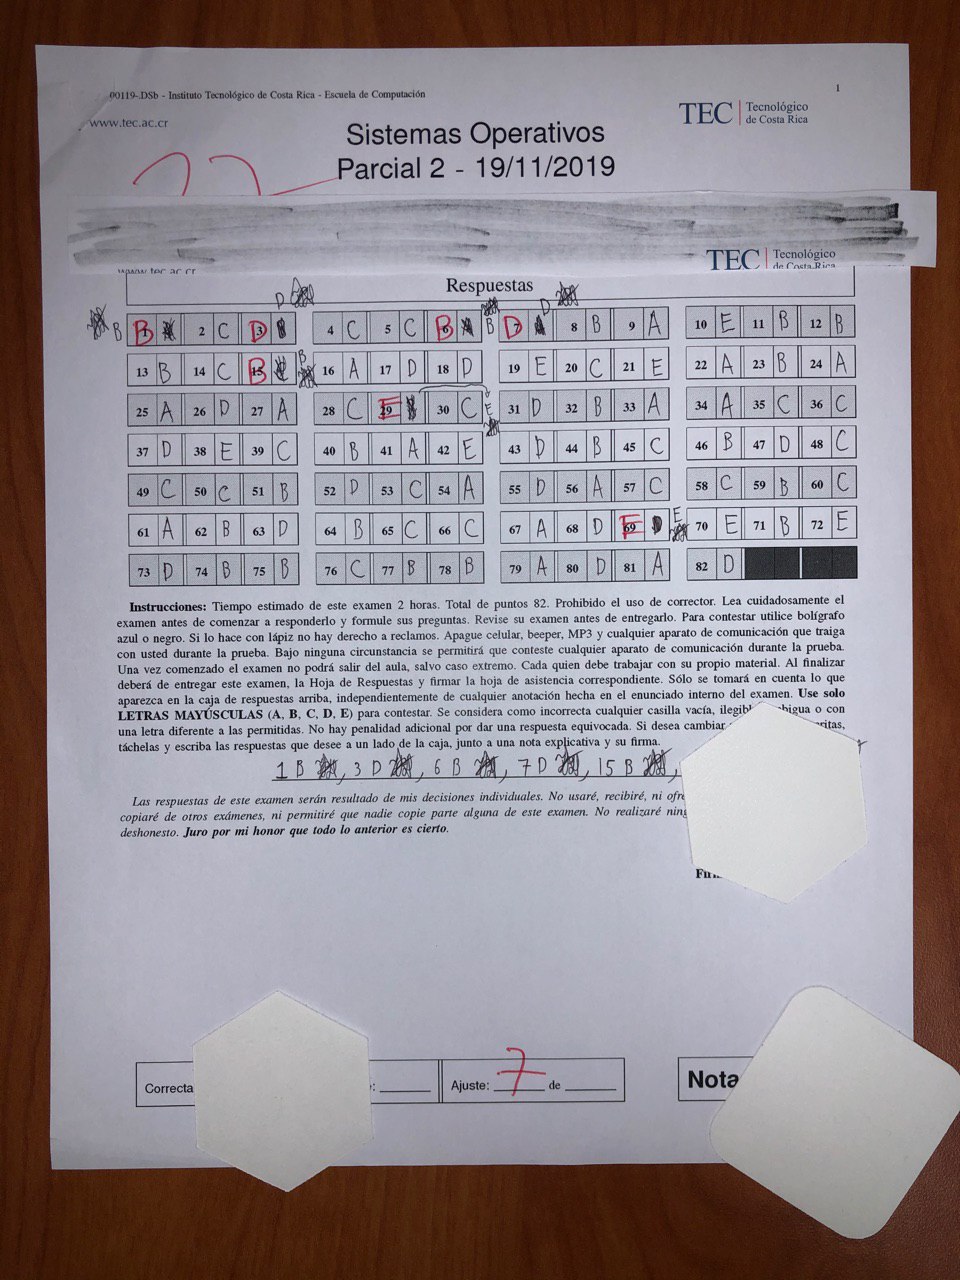 00119-.DSb - Instituto Tecnológico de Costa Rica - Escuela de Computación
1
www.tec.ac.cr
TEC Tecnológico de Costa Rica
Sistemas Operativos
Parcial 2 - 19/11/2019
TEC Tecnológico
de Costa Rica
www.tec.ac.cr
Respuestas
D D
B B 2 C D 4 C 5 C B B D 8 B 9 A 10 E 11 B 12 B
13 B 14 C 15 B B 16 A 17 D 18 D 19 E 20 C 21 E 22 A 23 B 24 A
25 A 26 D 27 A 28 C 29 E 30 C E 31 D 32 B 33 A 34 A 35 C 36 C
37 D 38 E 39 C 40 B 41 A 42 E 43 D 44 B 45 C 46 B 47 D 48 C
49 C 50 C 51 B 52 D 53 C 54 A 55 D 56 A 57 C 58 C 59 B 60 C
61 A 62 B 63 D 64 B 65 C 66 C 67 A 68 D 69 E E 70 E 71 B 72 E
73 D 74 B 75 B 76 C 77 B 78 B 79 A 80 D 81 A 82 D
Instrucciones: Tiempo estimado de este examen 2 horas. Total de puntos 82. Prohibido el uso de corrector. Lea cuidadosamente el
examen antes de comenzar a responderlo y formule sus preguntas. Revise su examen antes de entregarlo. Para contestar utilice bolígrafo
azul o negro. Si lo hace con lápiz no hay derecho a reclamos. Apague celular, beeper, MP3 y cualquier aparato de comunicación que traiga
con usted durante la prueba. Bajo ninguna circunstancia se permitirá que conteste cualquier aparato de comunicación durante la prueba.
Una vez comenzado el examen no podrá salir del aula, salvo caso extremo. Cada quien debe trabajar con su propio material. Al finalizar
deberá de entregar este examen, la Hoja de Respuestas y firmar la hoja de asistencia correspondiente. Sólo se tomará en cuenta lo que
aparezca en la caja de respuestas arriba, independientemente de cualquier anotación hecha en el enunciado interno del examen. Use solo
LETRAS MAYÚSCULAS (A, B, C, D, E) para contestar. Se considera como incorrecta cualquier casilla vacía, o con
una letra diferente a las permitidas. No hay penalidad adicional por dar una respuesta equivocada. Si desea cambiar
táchelas y escriba las respuestas que desee a un lado de la caja, junto a una nota explicativa y su firma.
1 B , 3 D , 6 B , 7 D , 15 B ,
Las respuestas de este examen serán resultado de mis decisiones individuales. No usaré, recibiré, ni
copiaré de otros exámenes, ni permitiré que nadie copie parte alguna de este examen. No realizaré
deshonesto. Juro por mi honor que todo lo anterior es cierto.
Ajuste: 7 de
Nota